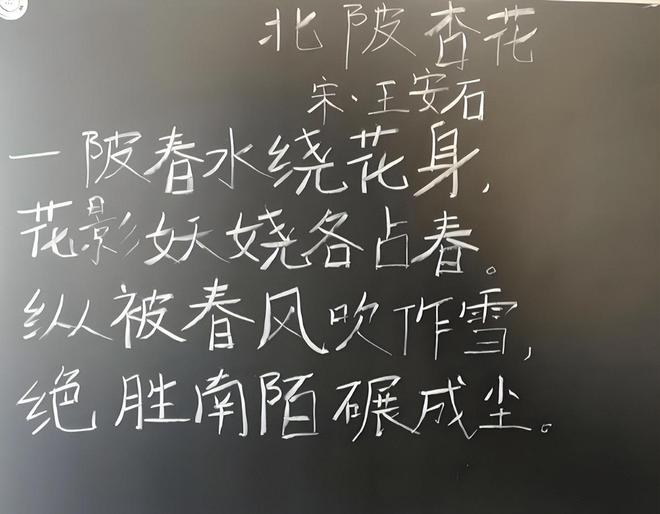 北陂杏花
宋·王安石
一陂春水绕花身，
花影妖娆各占春。
纵被春风吹作雪，
绝胜南陌碾成尘。